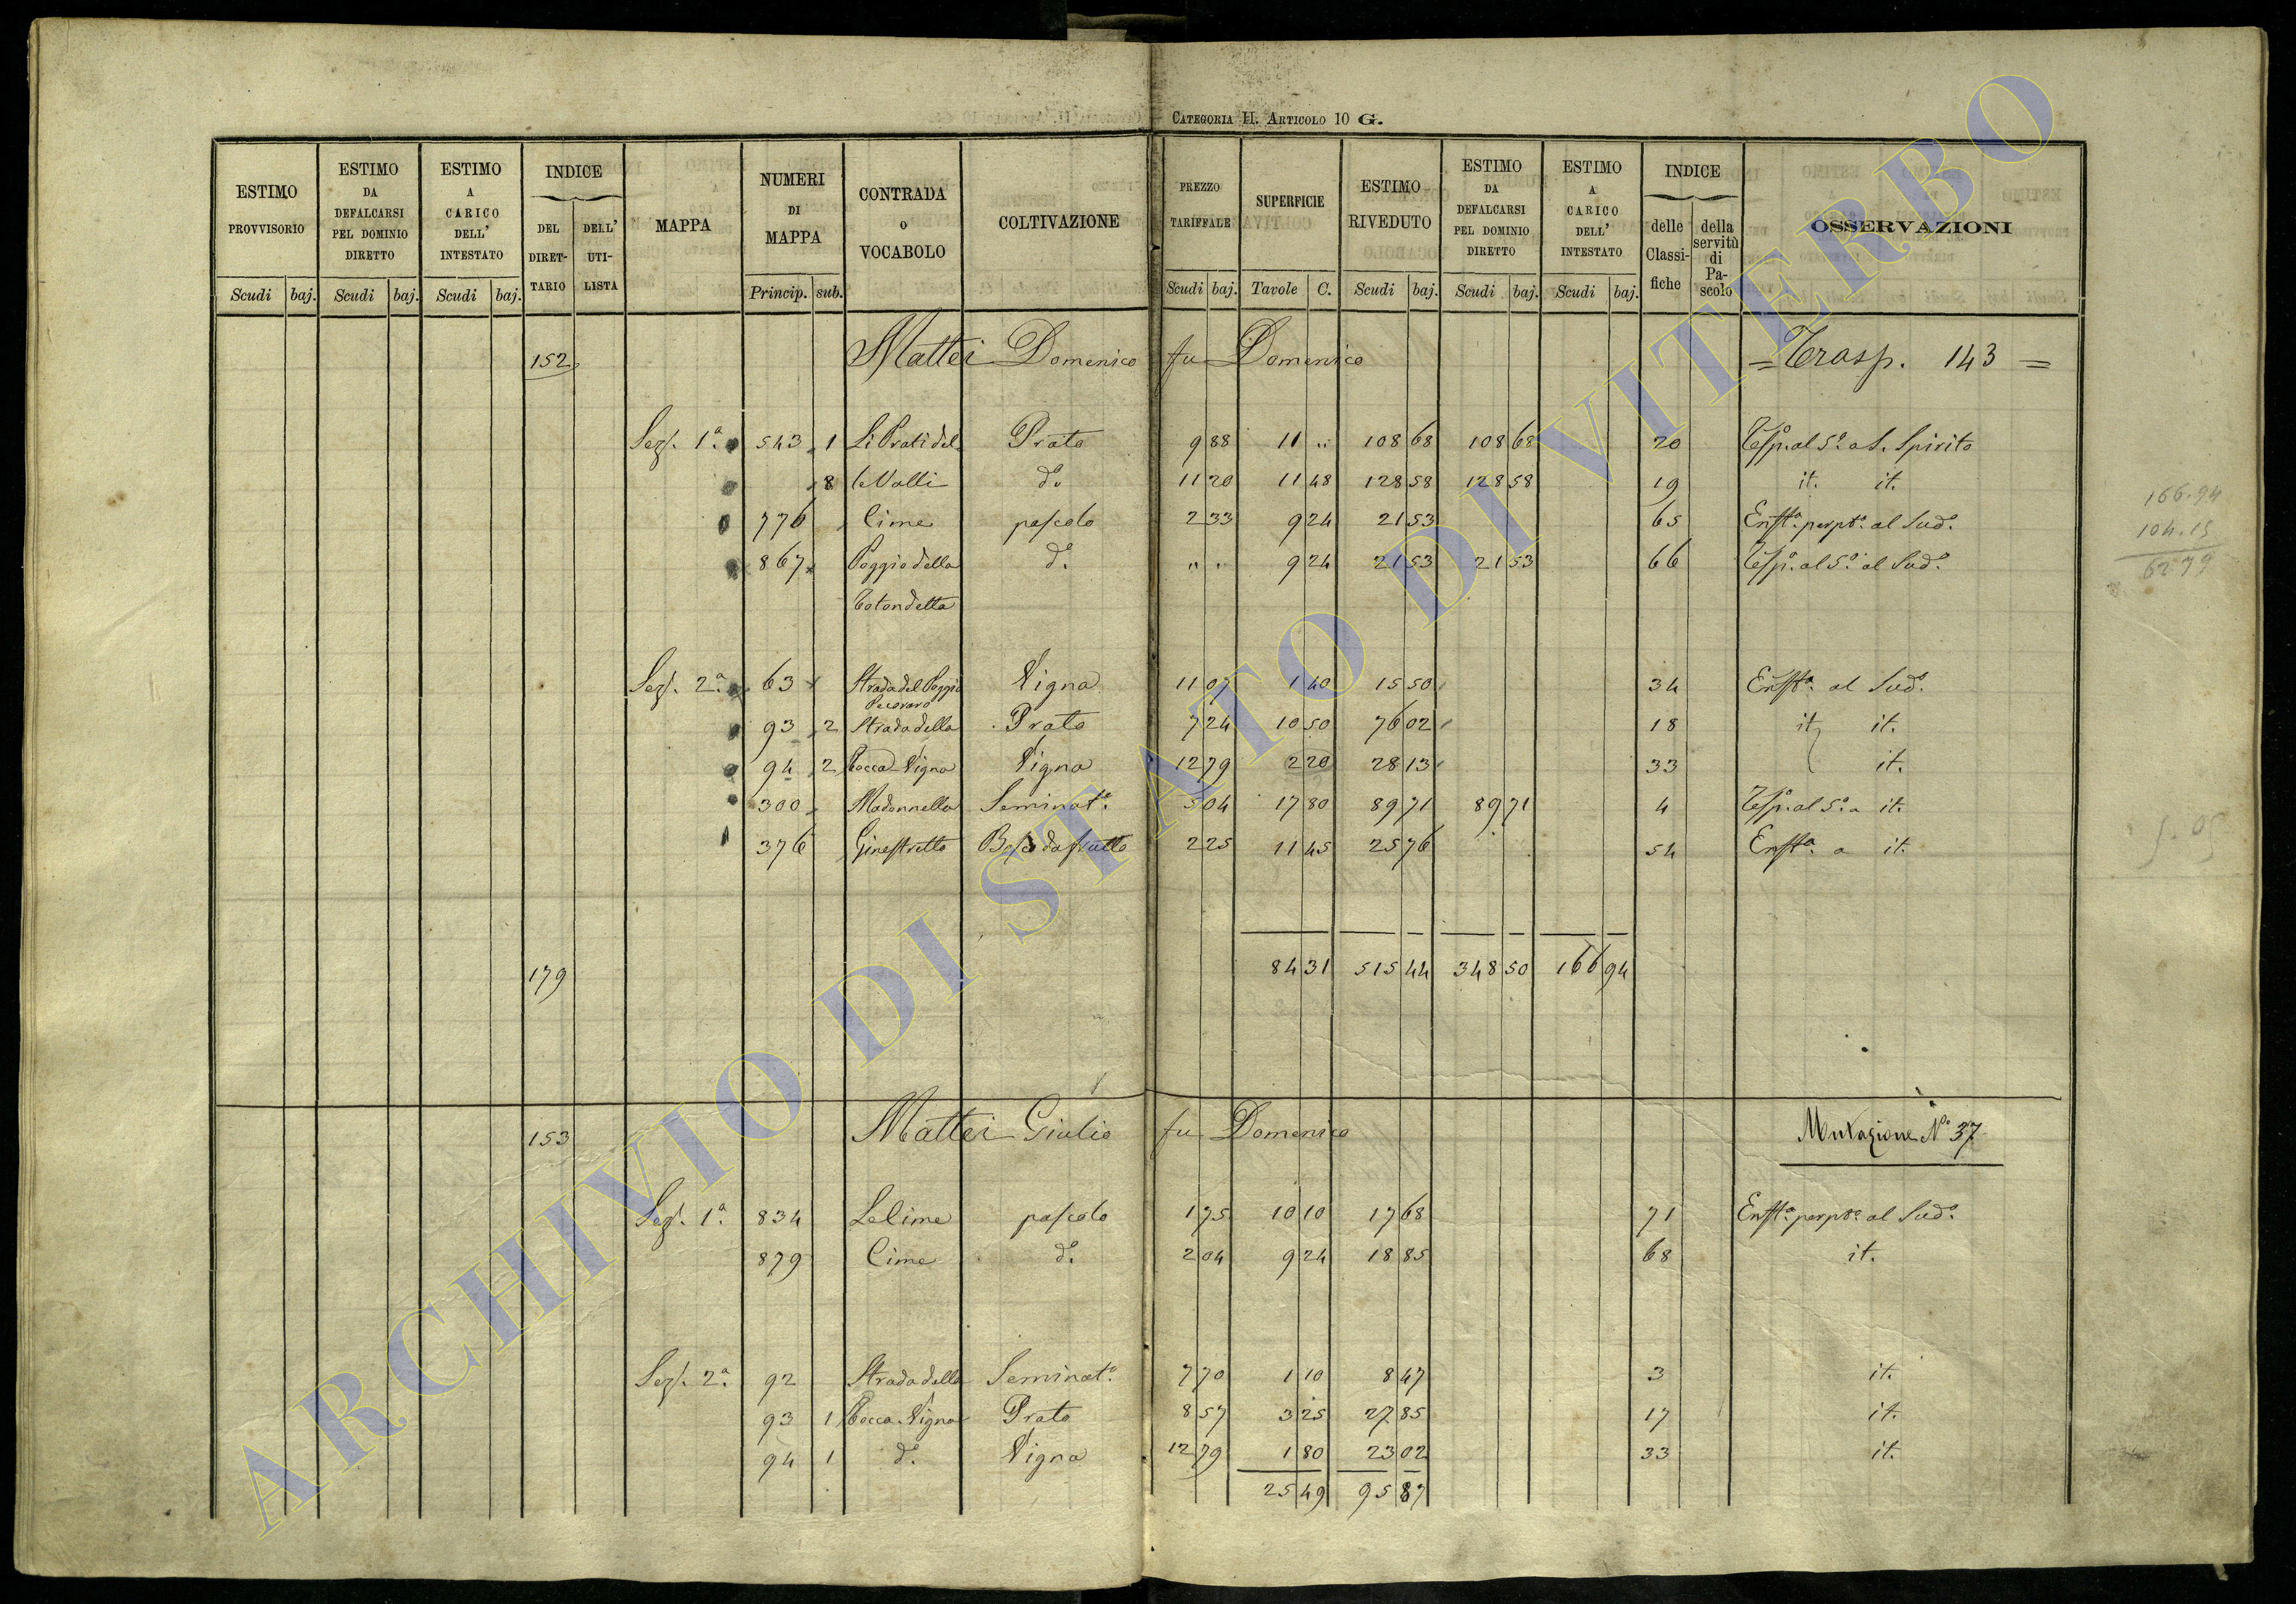 CATEGORIA II. ARTICOLO 10 G.
ESTIMO PROVVISORIO Scudi baj.
ESTIMO DA DEFALCARSI PEL DOMINIO DIRETTO Scudi baj.
ESTIMO A CARICO DELL' INTESTATO Scudi baj.
INDICE DEL DIRET-TARIO DELL' UTI-LISTA
MAPPA
NUMERI DI MAPPA Princip. sub.
CONTRADA O VOCABOLO
COLTIVAZIONE
PREZZO TARIFFALE Scudi baj.
SUPERFICIE Tavole C.
ESTIMO RIVEDUTO Scudi baj.
ESTIMO DA DEFALCARSI PEL DOMINIO DIRETTO Scudi baj.
ESTIMO A CARICO DELL' INTESTATO Scudi baj.
INDICE delle Classi-fiche della servitù di Pa-scolo
OSSERVAZIONI
152 Mattei Domenico fu Domenico = Trasp. 143 =
Sez. 1ª 543 1 Li Prati del Prato 9 88 11 .. 108 68 108 68 20 al 5º a S. Spirito
8 le Valli dº 11 20 11 48 128 58 128 58 19 it. it.
776 Cime pascolo 2 33 9 24 21 53 65 Enfta. perpta. al Sudº
867 Poggio della dº " " 9 24 21 53 21 53 66 al 5º al Sudº
Totondella
Sez. 2ª 63 Strada del Poggio Vigna 11 07 1 40 15 50 34 Enfta. al Sudº
Pecoraro
93 2 Strada della Prato 7 24 10 50 76 02 18 it. it.
94 2 Rocca Vigna Vigna 12 79 2 20 28 13 33 it.
300 Madonnella Seminatº 5 04 17 80 89 71 89 71 4 al 5º a it.
376 Ginestretto Bosco da frutto 2 25 11 45 25 76 54 Enfta. a it.
179 84 31 515 44 348 50 166 94
166.94
104.15
62.79
153 Mattei Giulio fu Domenico Mutazione Nº 37
Sez. 1ª 834 Le Cime pascolo 1 75 10 10 17 68 71 Enfta. perpta. al Sudº
879 Cime dº 2 04 9 24 18 85 68 it.
Sez. 2ª 92 Strada della Seminatº 7 70 1 10 8 47 3 it.
93 1 Rocca Vigna Prato 8 57 3 25 27 85 17 it.
94 1 dº Vigna 12 79 1 80 23 02 33 it.
25 49 95 87
ARCHIVIO DI STATO DI VITERBO